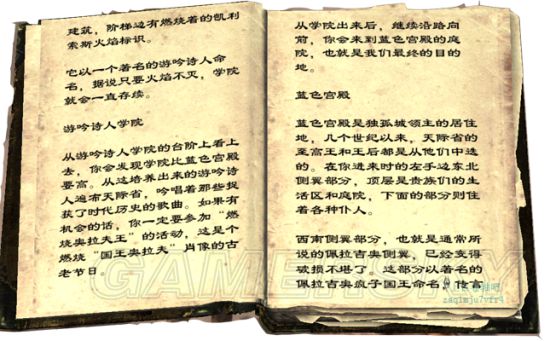 建筑，阶梯边有燃烧着的凯利
索斯火焰标识。
它以一个著名的游吟诗人命
名，据说只要火焰不灭，学院
就会一直存续。
游吟诗人学院
从游吟诗人学院的台阶上看上
去，你会发现学院比蓝色宫殿
要高。从这培养出来的游吟诗
人遍布天际省，吟唱着那些捉
获了时代历史的歌曲。如果有
机会的话，你一定要参加“燃
烧奥拉夫王”的活动，这是个
燃烧“国王奥拉夫”肖像的古
老节日。
从学院出来后，继续沿路向
前，你会来到蓝色宫殿的庭
院，也就是我们最终的目的
地。
蓝色宫殿
蓝色宫殿是独孤城领主的居住
地，几个世纪以来，天际省的
至高王和王后都是从他们中选
的。在你进来时的左手边东北
侧翼部分，顶层是贵族们的生
活区和庭院，下面的部分则住
着各种仆人。
西南侧翼部分，也就是通常所
说的佩拉吉奥侧翼，已经变得
破损不堪了。这部分以著名的
佩拉吉奥疯子国王命名，传言
GAMERSKY
zaqimju7vfr4